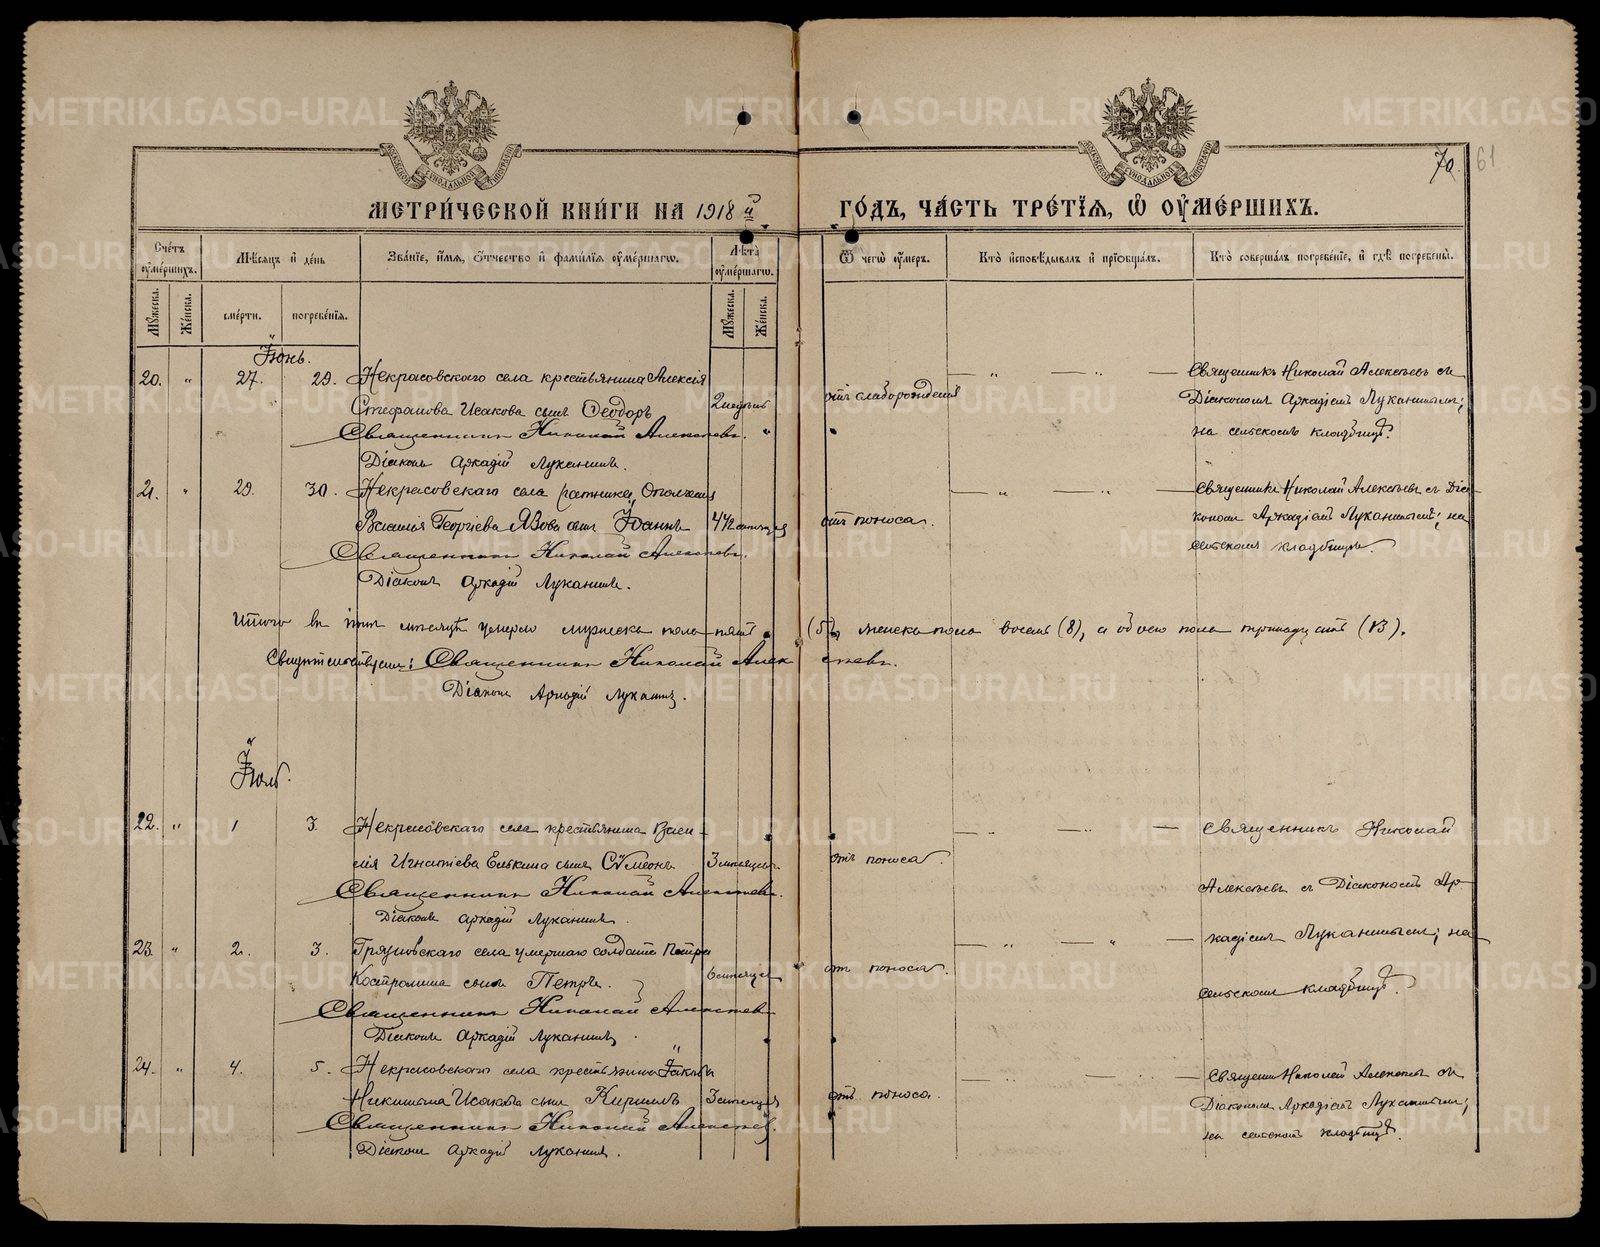 МЕТРИ́ЧЕСКОЙ КНИ́ГИ НА 1918 й ГО́ДЪ, ЧА́СТЬ ТРЕ́ТІЯ, Ѡ ОУМЕ́РШИХЪ.
70
61
Сче́тъ оумершихъ.
Мѣсяцъ и день
Званіе, имя, отчество и фамилія оумершагѡ.
Лѣта оумершагѡ.
Ѿ чегѡ оумеръ.
Кто исповѣдывалъ и пріобщалъ.
Кто совершалъ погребеніе, и гдѣ погребены.
Мужеска.
Женска.
смерти.
погребенія.
Мужеска.
Женска.
Іюнь.
20. " 27. 29. Некрасовскаго села крестьянина Алексія
Стефанова Исакова сынъ Ѳеодоръ
Священникъ Николай Алексѣевъ.
Діаконъ Аркадій Луканинъ.
отъ слаборожденія
Священникъ Николай Алексѣевъ съ
Діакономъ Аркадіемъ Луканинымъ;
на сельскомъ кладбищѣ.
21. " 29. 30. Некрасовскаго села ратника Ополченія
Василія Георгіева Язова сынъ Іоаннъ
Священникъ Николай Алексѣевъ.
Діаконъ Аркадій Луканинъ.
отъ поноса.
Священникъ Николай Алексѣевъ съ Діа-
кономъ Аркадіемъ Луканинымъ; на
сельскомъ кладбищѣ.
Итого въ іюнѣ мѣсяцѣ умерло мужеска пола пять (5), женска пола восемь (8), а обоего пола тринадцать (13).
Свидѣтельствуемъ: Священникъ Николай Алексѣевъ.
Діаконъ Аркадій Луканинъ.
Іюль.
22. " 1 3. Некрасовскаго села крестьянина Васи-
лія Игнатіева Елькина сынъ Сѵмеонъ 3 мѣсяцевъ
Священникъ Николай Алексѣевъ.
Діаконъ Аркадій Луканинъ.
отъ поноса.
Священникъ Николай
Алексѣевъ съ Діакономъ Ар-
кадіемъ Луканинымъ; на
сельскомъ кладбищѣ.
23. " 2. 3. Грязновскаго села умершаго солдата Петра
Костромина сынъ Петръ. 6 мѣсяцевъ
Священникъ Николай Алексѣевъ
Діаконъ Аркадій Луканинъ.
отъ поноса.
24. " 4. 5. Некрасовскаго села крестьянина Іакова
Никитина Исакова сынъ Кириллъ 3 мѣсяцевъ
Священникъ Николай Алексѣевъ.
Діаконъ Аркадій Луканинъ.
отъ поноса.
Священникъ Николай Алексѣевъ съ
Діакономъ Аркадіемъ Луканинымъ;
на сельскомъ кладбищѣ.
METRIKI.GASO-URAL.RU